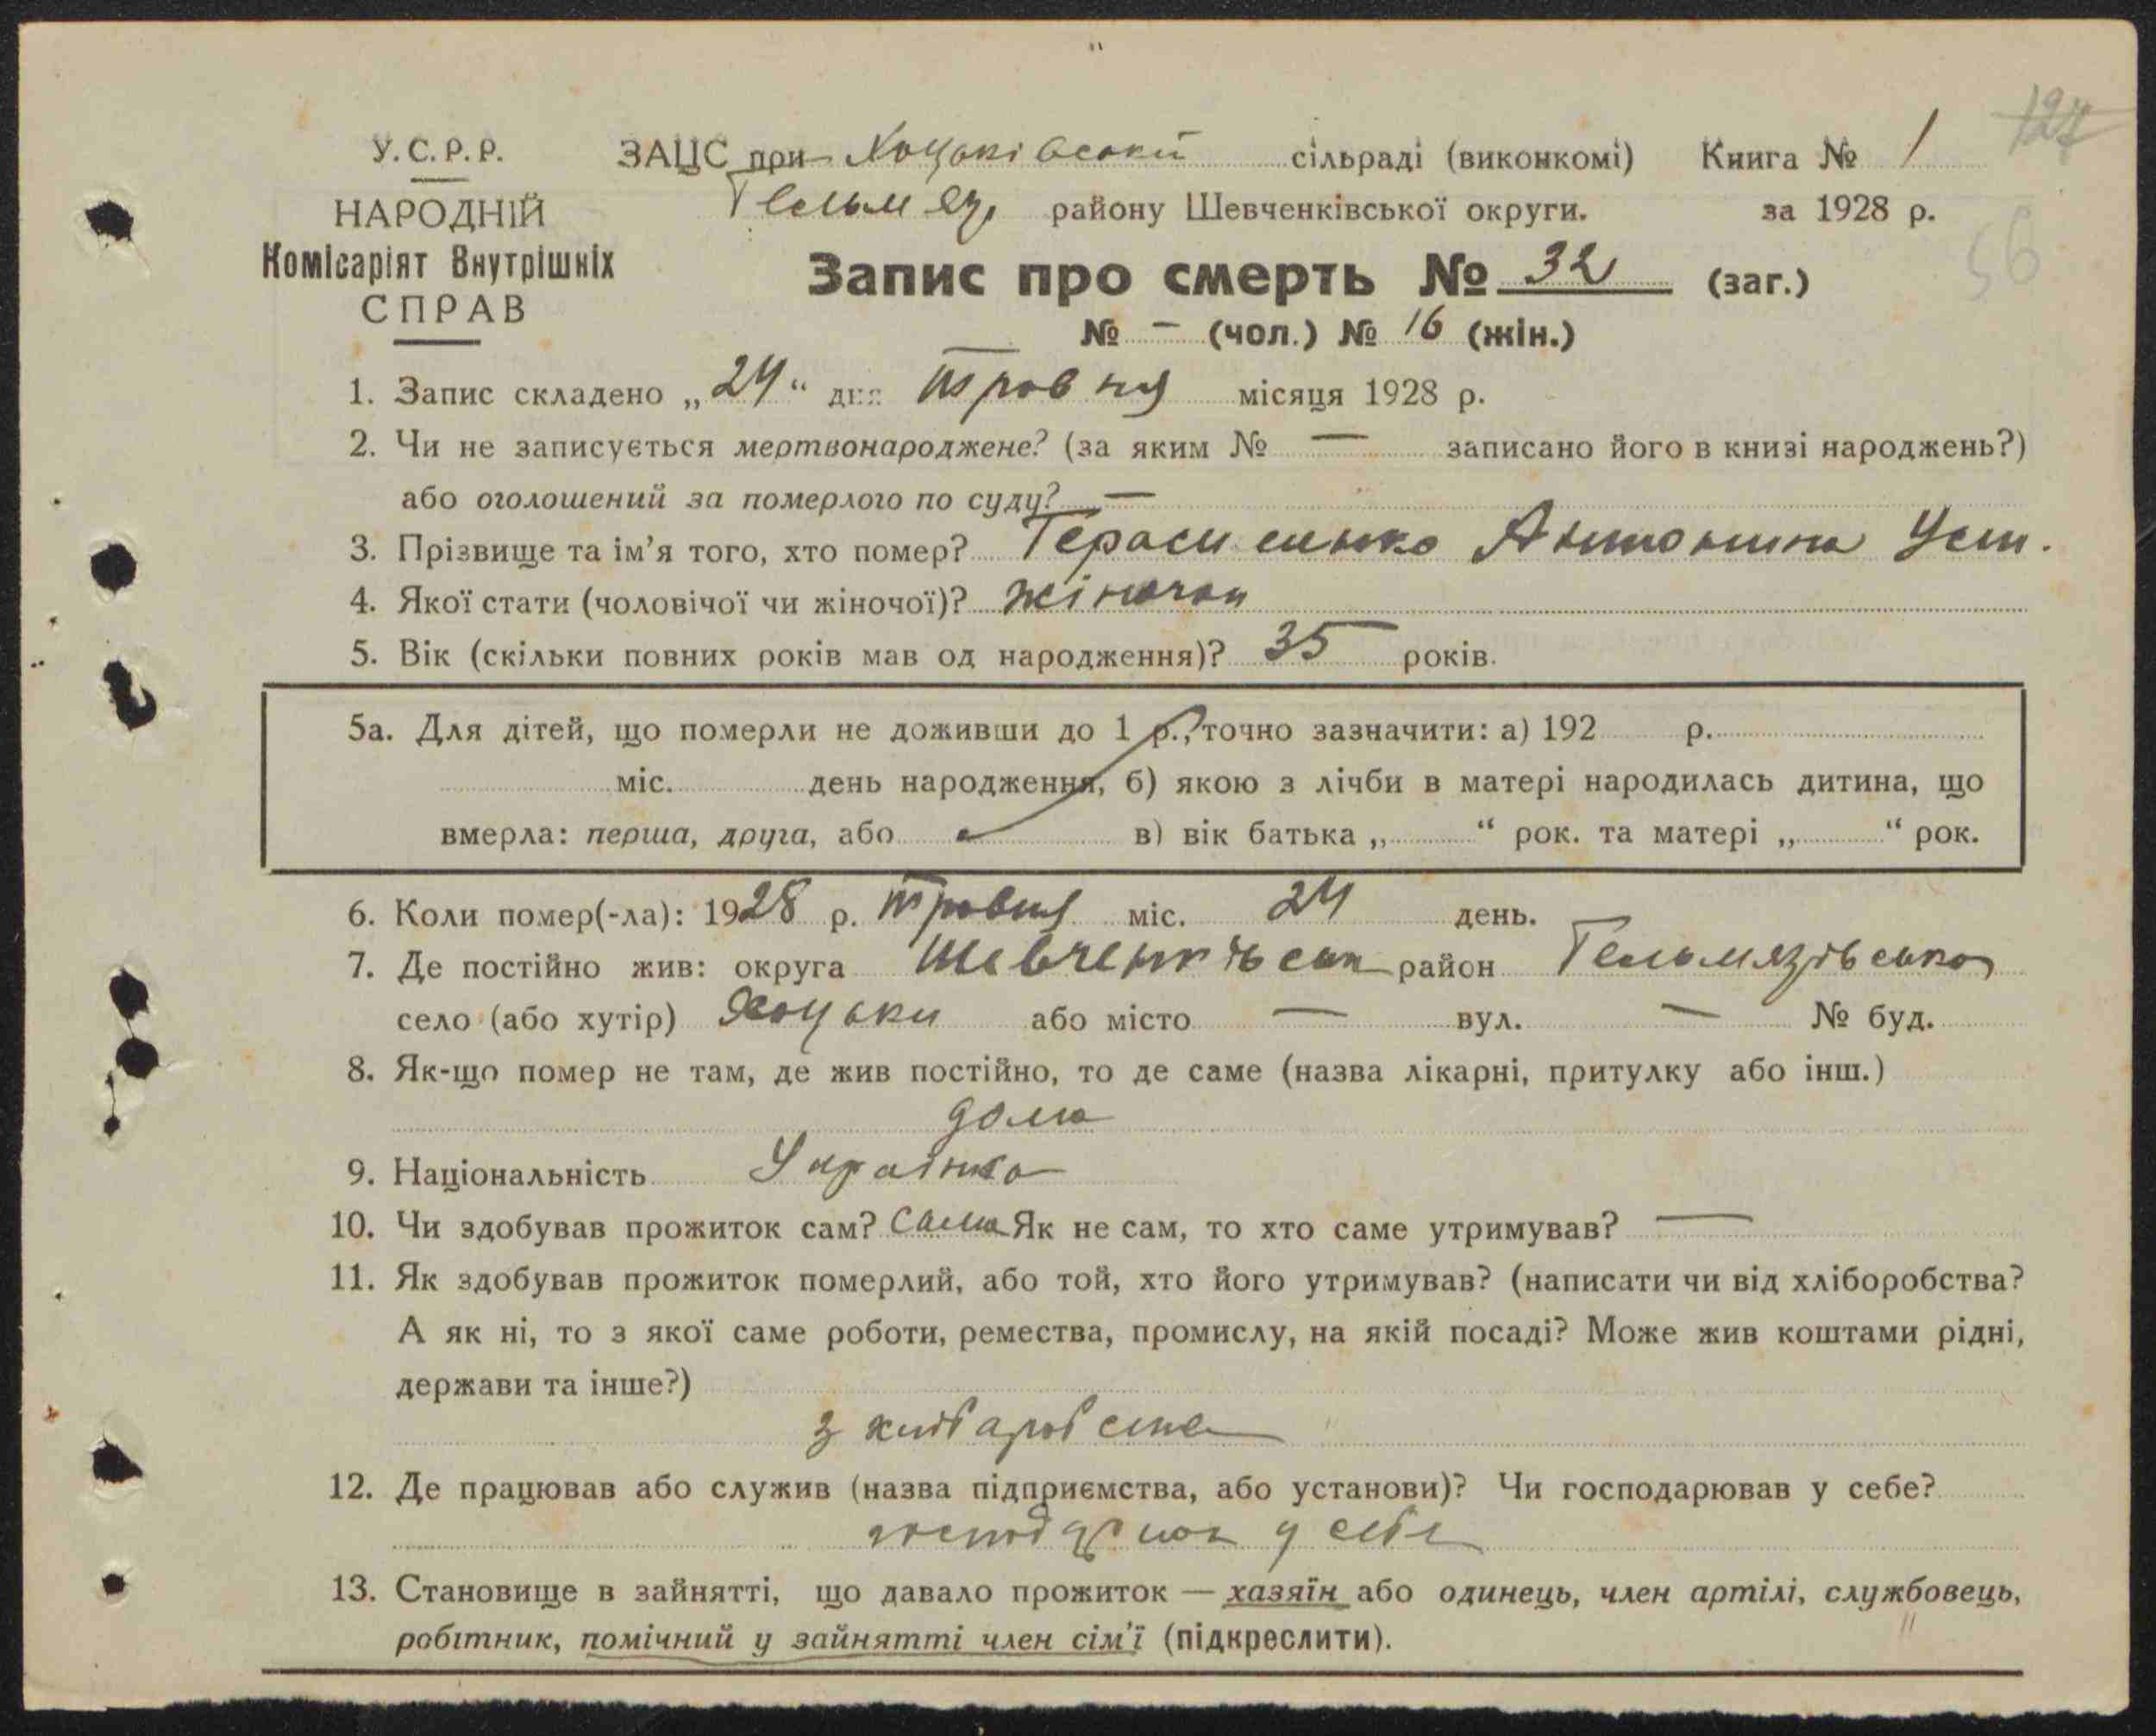 127
У.С.Р.Р. ЗАЦС при Хоцьківській сільраді (виконкомі) Книга № 1
НАРОДНІЙ Гельмяз. району Шевченківської округи. за 1928 р.
56
Комісаріят Внутрішніх
СПРАВ
Запис про смерть № 32 (заг.)
№ — (чол.) № 16 (жін.)
1. Запис складено „24“ дня травня місяця 1928 р.
2. Чи не записується мертвонароджене? (за яким № — записано його в книзі народжень?)
або оголошений за померлого по суду? —
3. Прізвище та ім’я того, хто помер? Герасименко Антонина Уст.
4. Якої стати (чоловічої чи жіночої)? жіночої
5. Вік (скільки повних років мав од народження)? 35 років.
5а. Для дітей, що померли не доживши до 1 р., точно зазначити: а) 192 р.
міс. день народження, б) якою з лічби в матері народилась дитина, що
вмерла: перша, друга, або в) вік батька „ “ рок. та матері „ “ рок.
6. Коли помер(-ла): 1928 р. травня міс. 24 день.
7. Де постійно жив: округа Шевченківськ район Гельмязівсько
село (або хутір) Хоцьки або місто — вул. — № буд.
8. Як-що помер не там, де жив постійно, то де саме (назва лікарні, притулку або інш.)
дома
9. Національність Українка
10. Чи здобував прожиток сам? Сама Як не сам, то хто саме утримував? —
11. Як здобував прожиток померлий, або той, хто його утримував? (написати чи від хліборобства?
А як ні, то з якої саме роботи, ремества, промислу, на якій посаді? Може жив коштами рідні,
держави та інше?)
з хліборобства
12. Де працював або служив (назва підприємства, або установи)? Чи господарював у себе?
у себе
13. Становище в зайнятті, що давало прожиток — хазяїн або одинець, член артілі, службовець,
робітник, помічний у зайнятті член сім’ї (підкреслити).